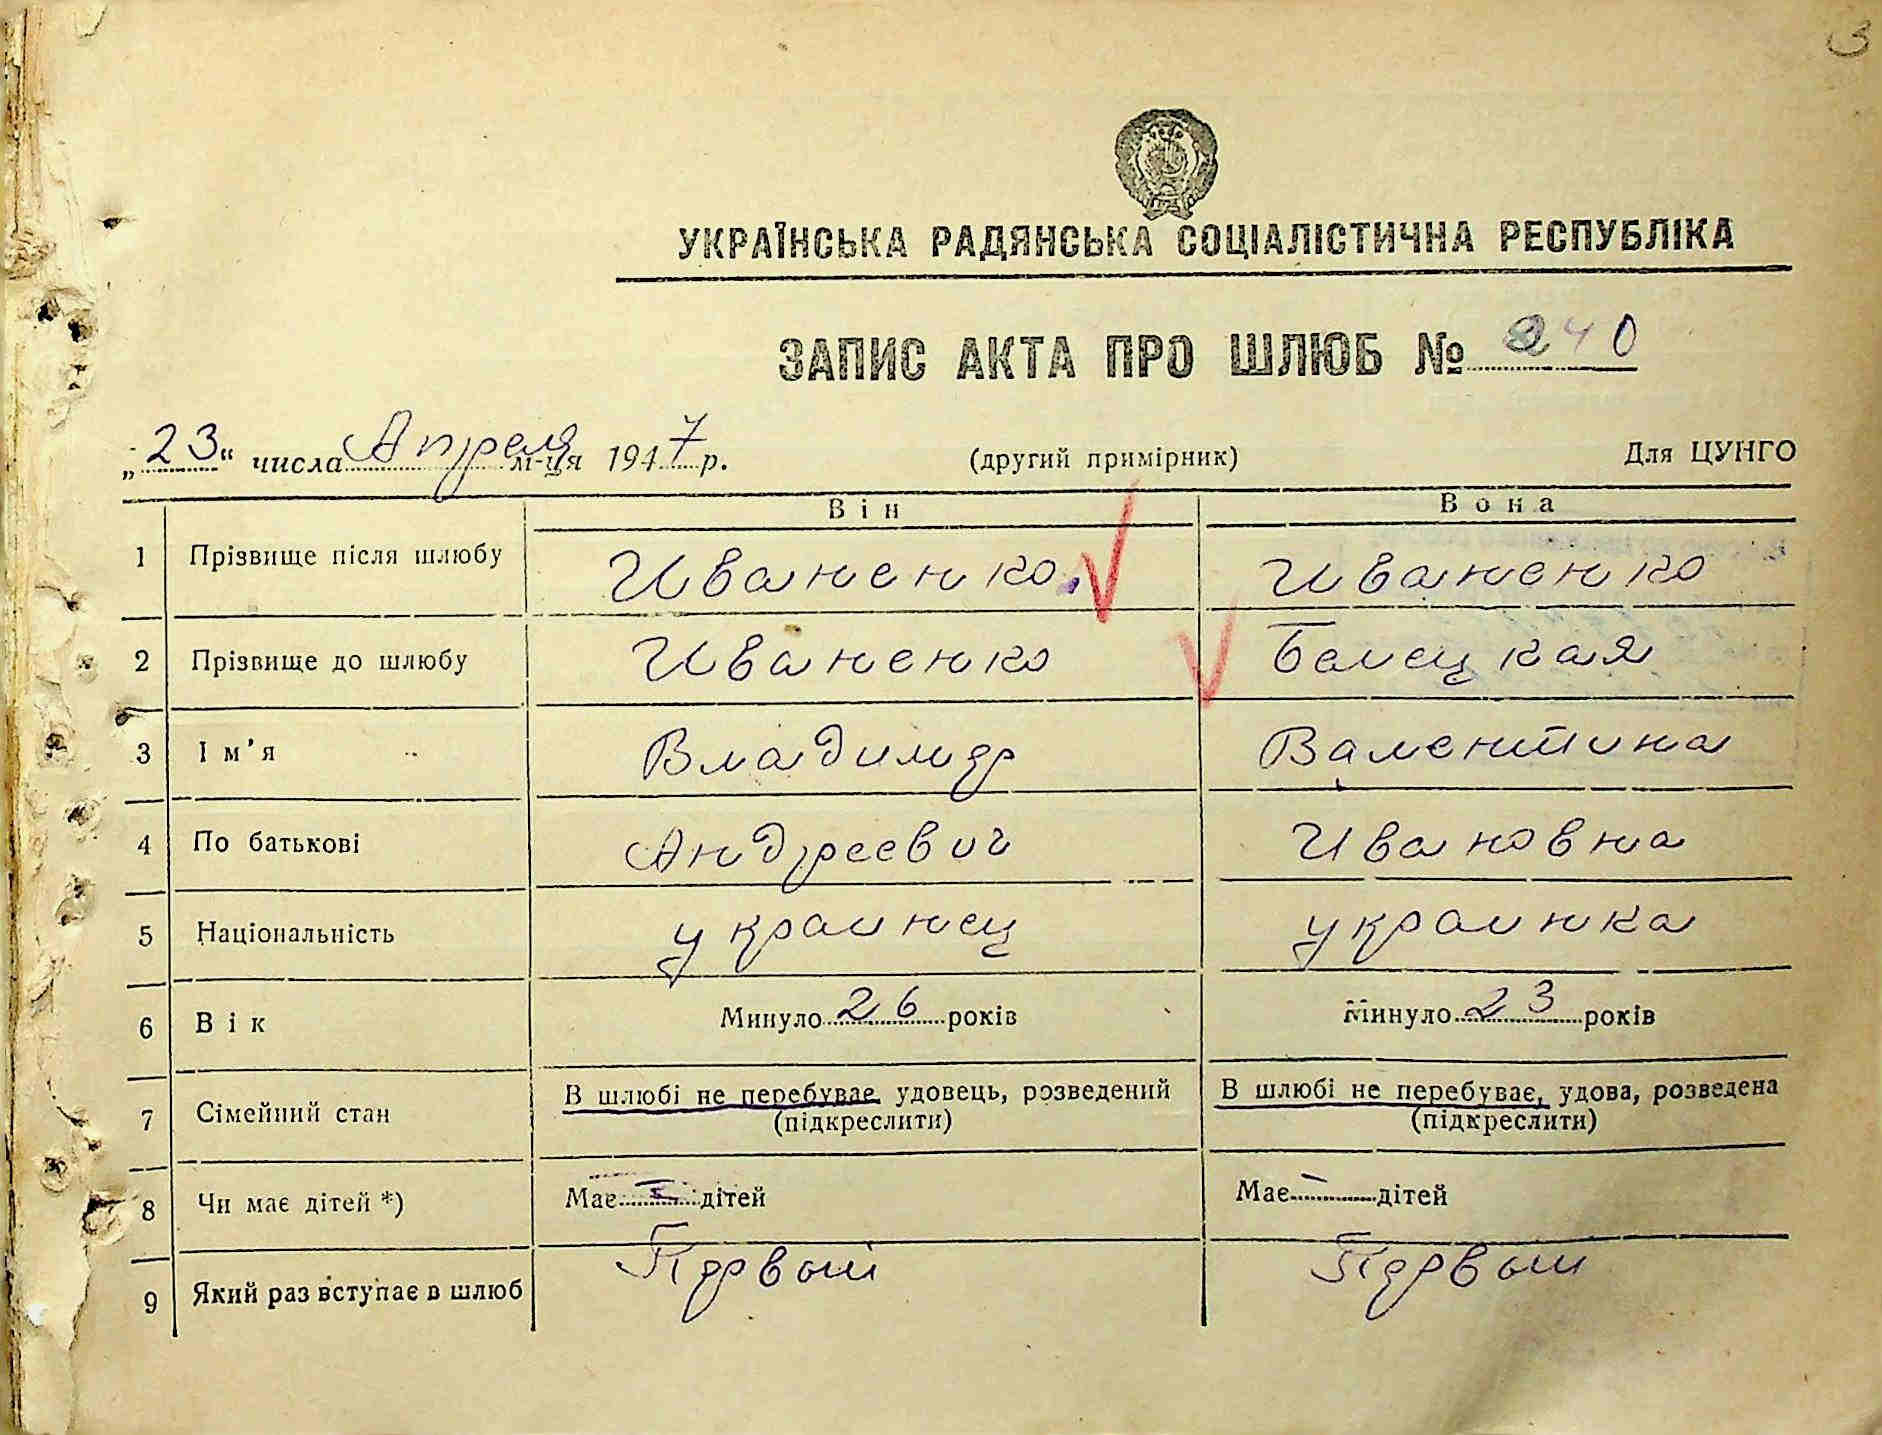 3
УКРАЇНСЬКА РАДЯНСЬКА СОЦІАЛІСТИЧНА РЕСПУБЛІКА
ЗАПИС АКТА ПРО ШЛЮБ № 240
„23“ числа Апреля м-ця 1947 р. (другий примірник) Для ЦУНГО
Він Вона
1 Прізвище після шлюбу Иваненко. Иваненко
2 Прізвище до шлюбу Иваненко Белецкая
3 Ім'я Владимир Валентина
4 По батькові Андреевич Ивановна
5 Національність украинец украинка
6 Вік Минуло 26 років Минуло 23 років
7 Сімейний стан В шлюбі не перебуває, удовець, розведений В шлюбі не перебуває, удова, розведена
(підкреслити) (підкреслити)
8 Чи має дітей *) Має — дітей Має — дітей
9 Який раз вступає в шлюб Первый Первый